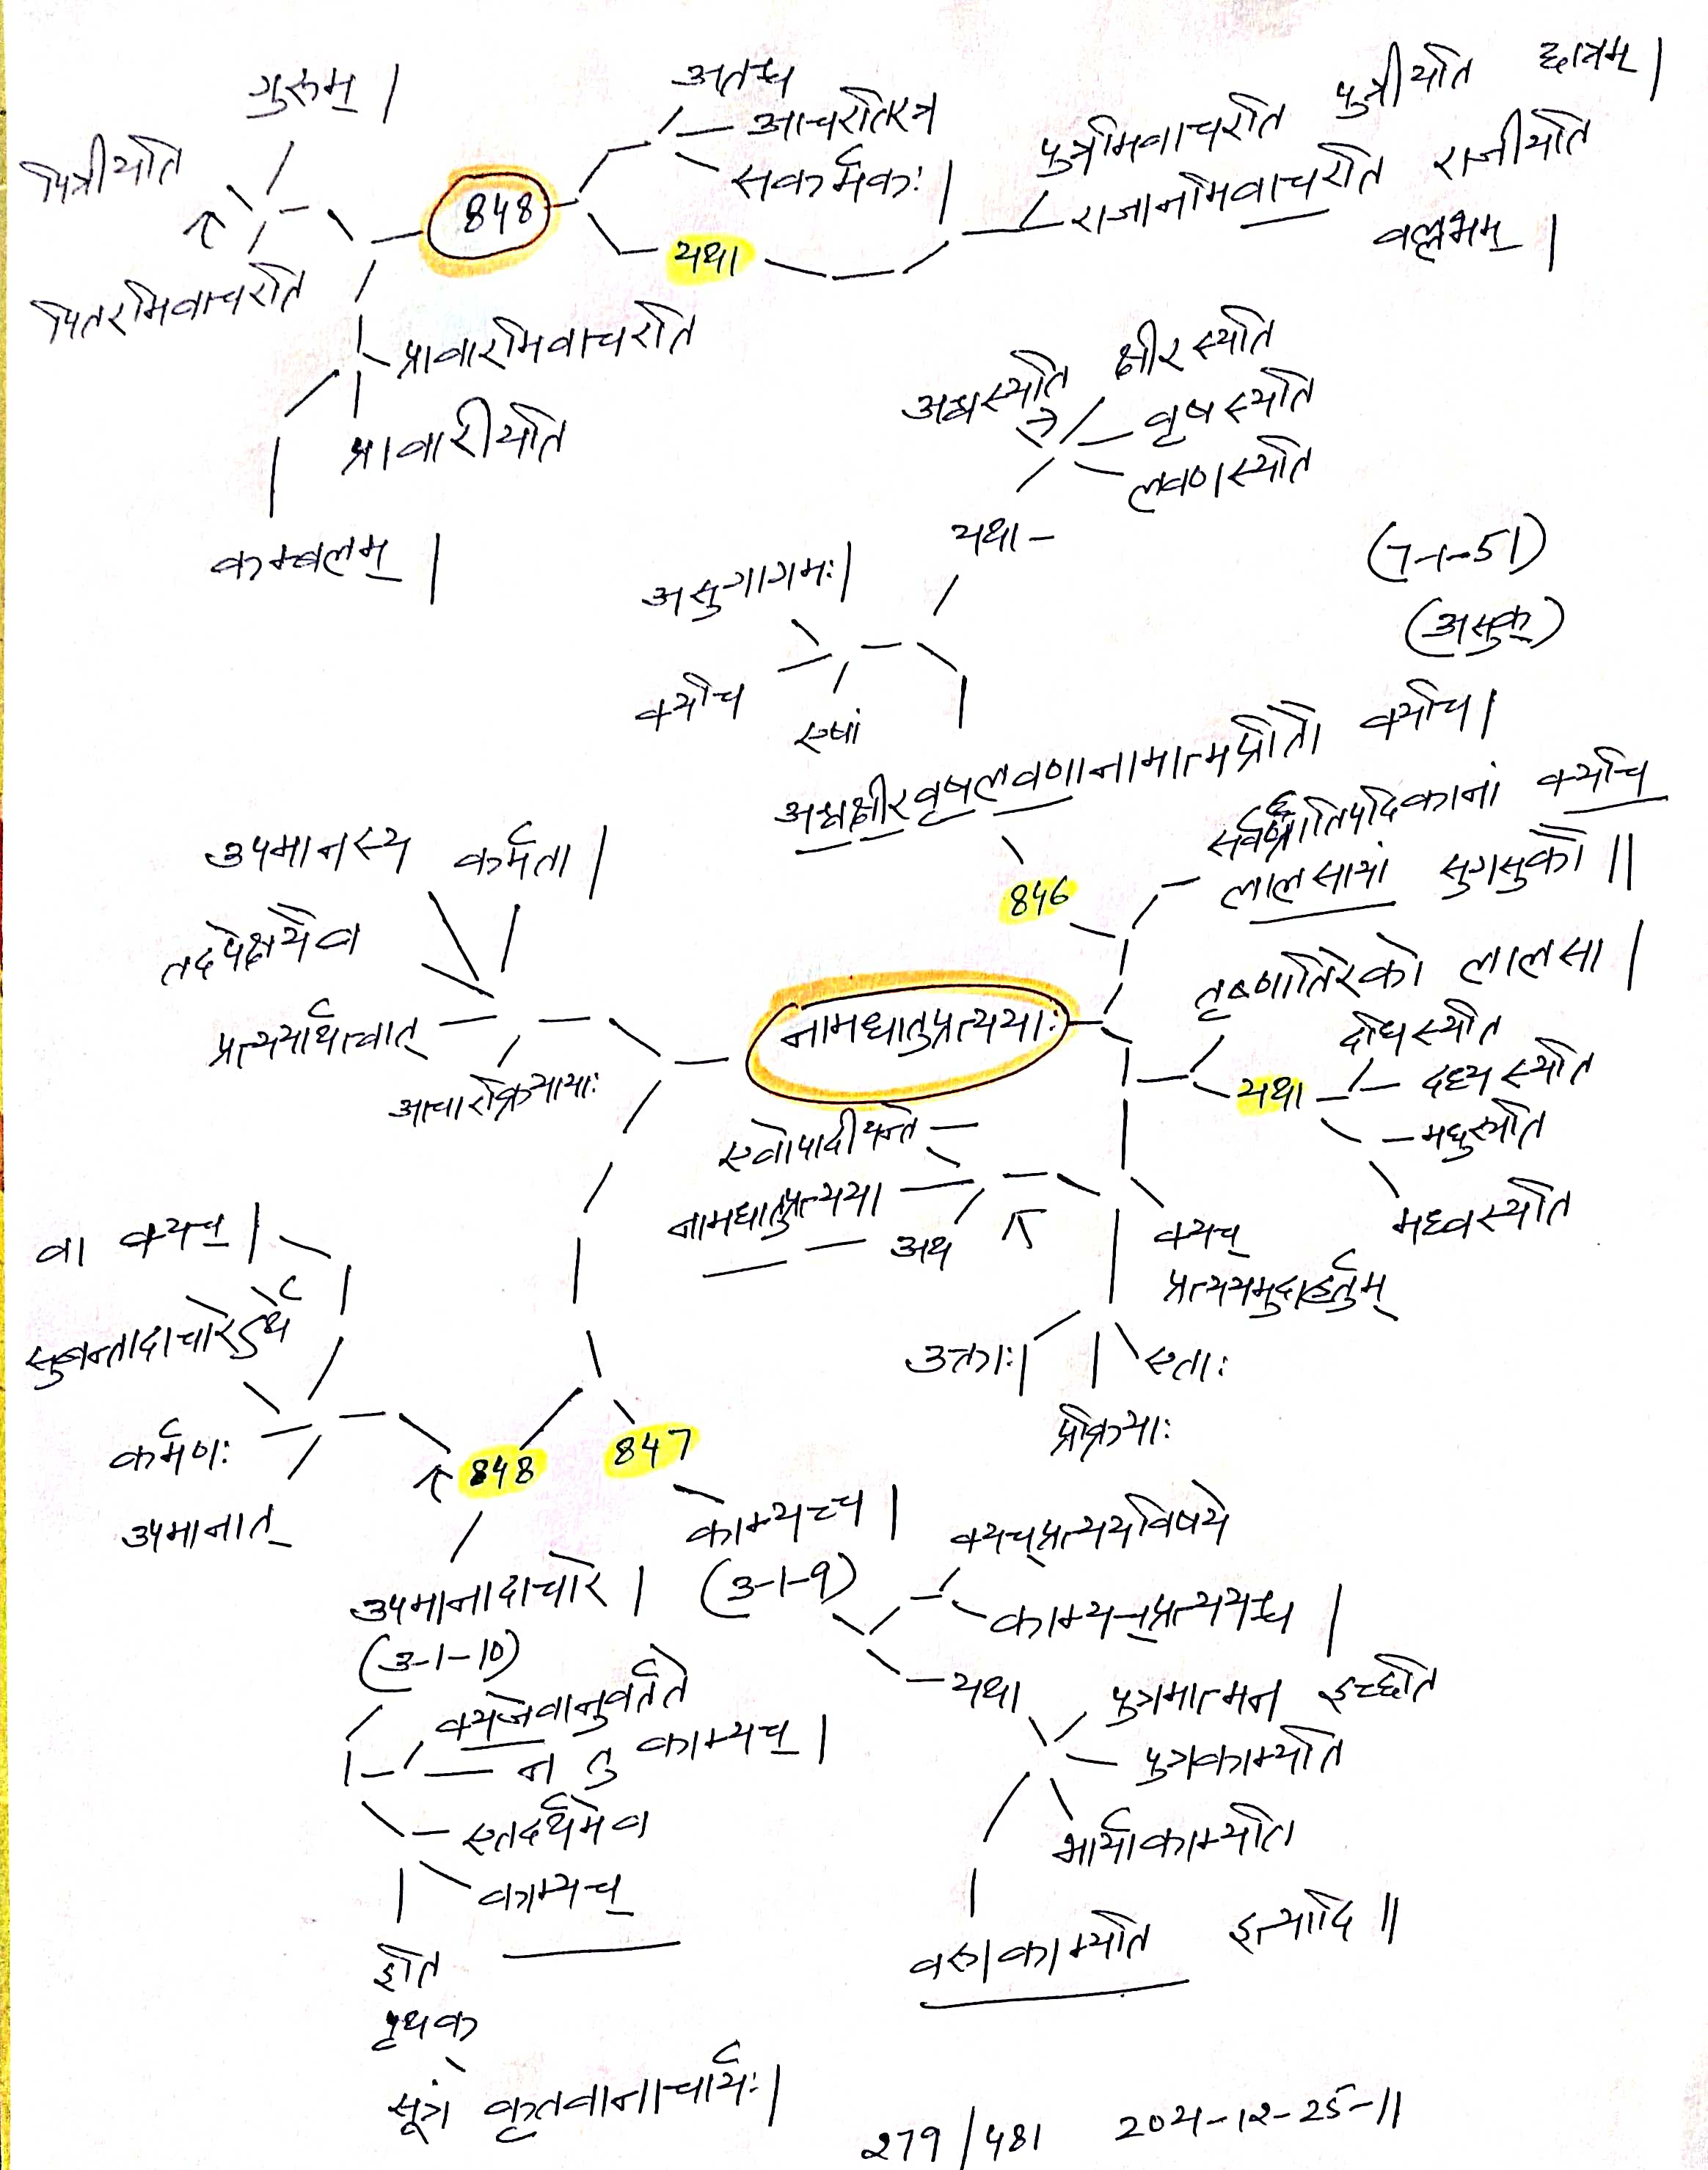 गुरुम् |
पित्रीयति
पितरमिवाचरति
848
अतश्च
आचरतिरत्र
सकर्मकः |
यथा
पुत्रमिवाचरति पुत्रीयति छात्रम् |
राजानमिवाचरति राजीयति
वल्लभम् |
प्रावारमिवाचरति
प्रावारीयति
कम्बलम् |
अश्वस्यति
क्षीरस्यति
वृषस्यति
लवणस्यति
यथा -
असुगागमः |
क्यचि
एषां
(7-1-51)
(असुक्)
अश्वक्षीरवृषलवणानामात्मप्रीतौ क्यचि |
846
सर्वप्रातिपदिकानां क्यचि
लालसायां सुगसुकौ ||
तृष्णातिरेको लालसा |
यथा
दधिस्यति
दध्यस्यति
मधुस्यति
मध्वस्यति
नामधातुप्रत्ययाः
उपमानस्य कर्मता |
तदपेक्षयैव
प्रत्ययार्थत्वात्
आचारक्रियायाः
एवोपादीयन्ते
नामधातुप्रत्यया
अथ
क्यच्
प्रत्ययमुदाहर्तुम्
उक्ताः |
एताः
प्रक्रियाः
वा क्यच् |
सुबन्तादाचारेऽर्थे
कर्मणः
उपमानात्
848
847
काम्यच्च |
(3-1-9)
क्यच्प्रत्ययविषये
काम्यच्प्रत्ययश्च |
यथा
पुत्रमात्मन इच्छति
पुत्रकाम्यति
भार्याकाम्यति
वस्त्रकाम्यति इत्यादि ||
उपमानादाचारे |
(3-1-10)
क्यजेवानुवर्तते
न तु काम्यच् |
एतदर्थमेव
काम्यच्
इति
पृथक्
सूत्रं कृतवानाचार्यः |
279 / 481 2021-12-25-11